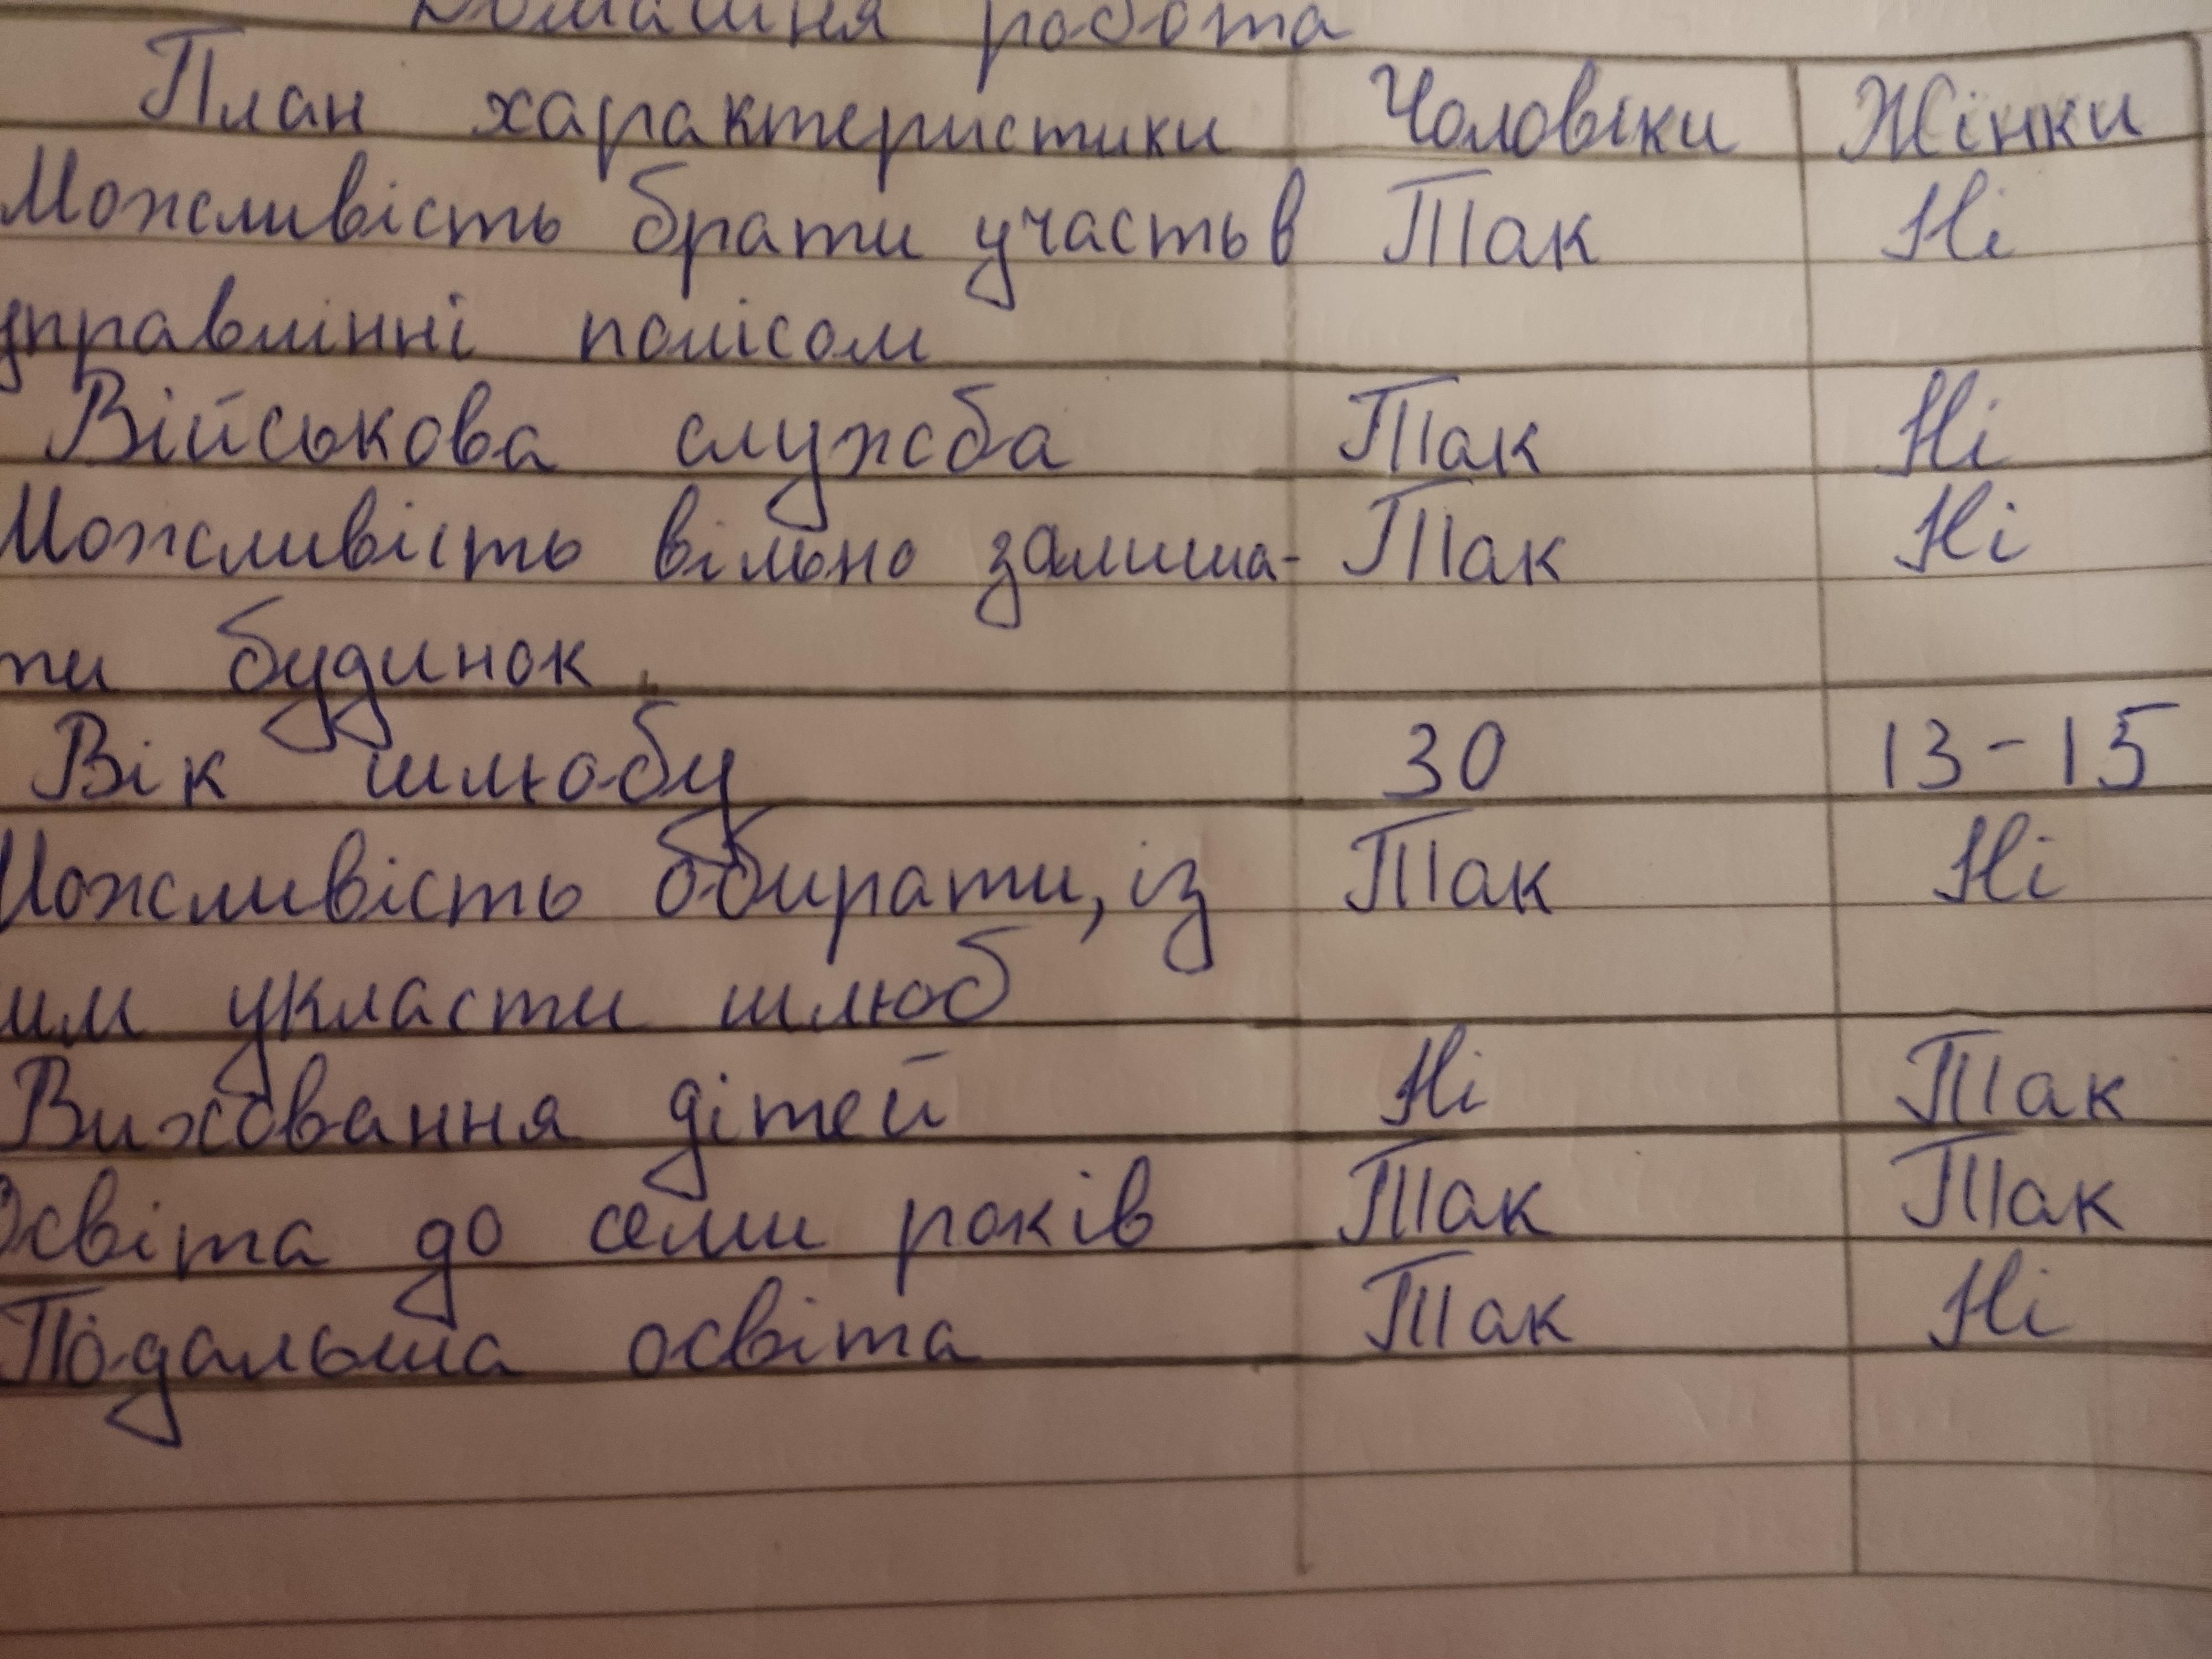 Домашня робота
План характеристики Чоловіки Жінки
Можливість брати участь в Так Ні
управлінні полісом
Військова служба Так Ні
Можливість вільно залиша- Так Ні
ти будинок
Вік шлюбу 30 13-15
Можливість обирати, із Так Ні
ким укласти шлюб
Виховання дітей Ні Так
Освіта до семи років Так Так
Подальша освіта Так Ні